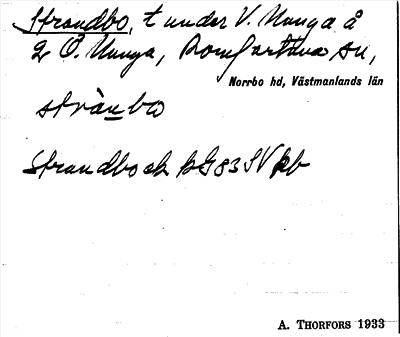 Strandbo, t under V. Nunga å
2 Ö. Nunga, Romfartuna sn,
Norrbo hd, Västmanlands län
strànbo
Strandbo ek
A. THORFORS 1933